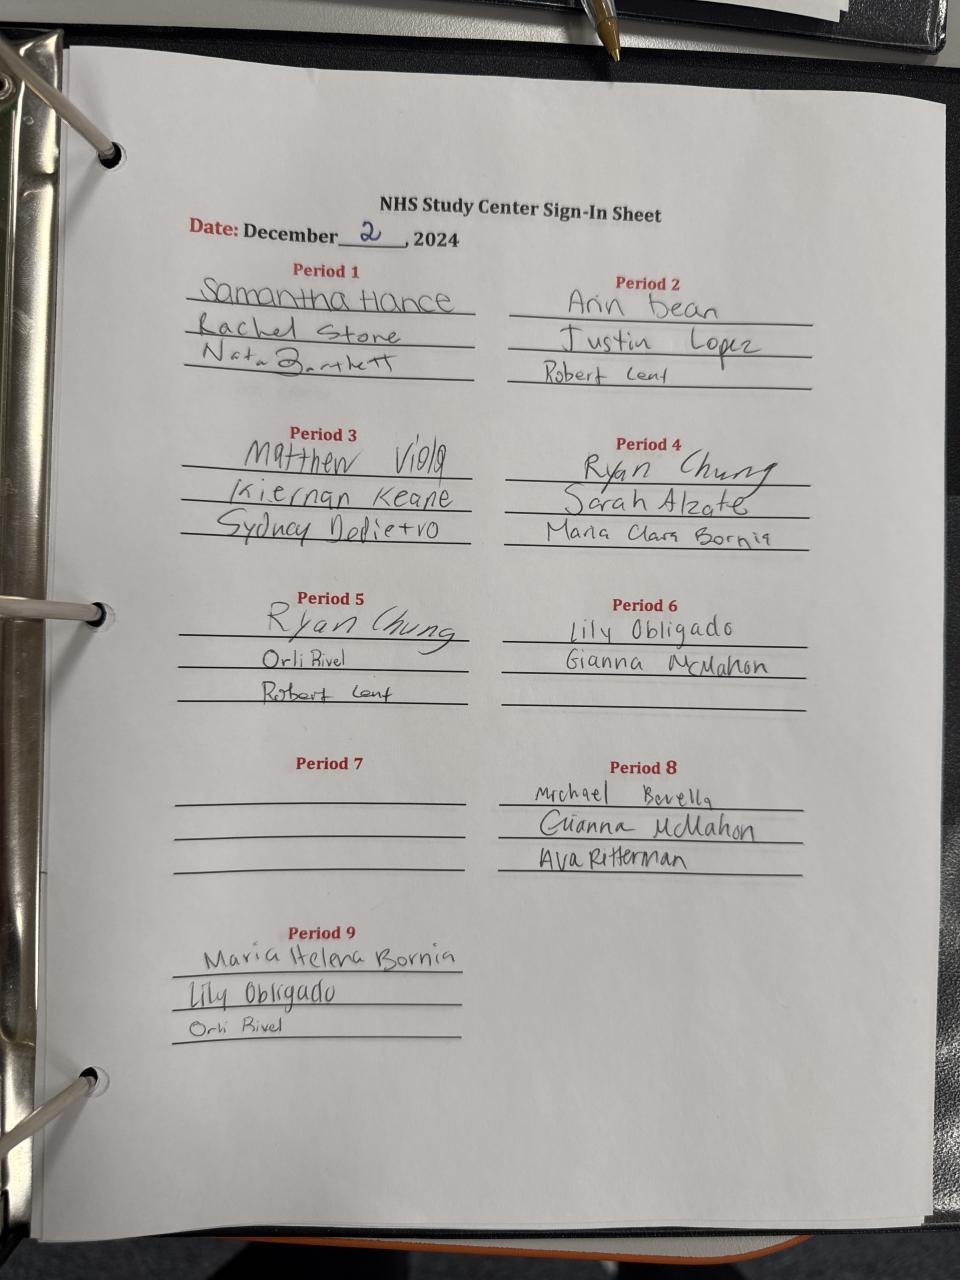 NHS Study Center Sign-In Sheet
Date: December 2, 2024
Period 1
Samantha Hance
Rachel Stone
Nata Bartlett
Period 2
Arin Dean
Justin Lopez
Robert Lent
Period 3
Matthew Viola
Kiernan Keane
Sydney Dedietro
Period 4
Ryan Chung
Sarah Alzate
Maria Clara Bornia
Period 5
Ryan Chung
Orli Rivel
Robert Lent
Period 6
Lily Obligado
Gianna McMahon
Period 7
Period 8
Michael Bovella
Gianna McMahon
Ava Ritterman
Period 9
Maria Helena Bornia
Lily Obligado
Orli Rivel